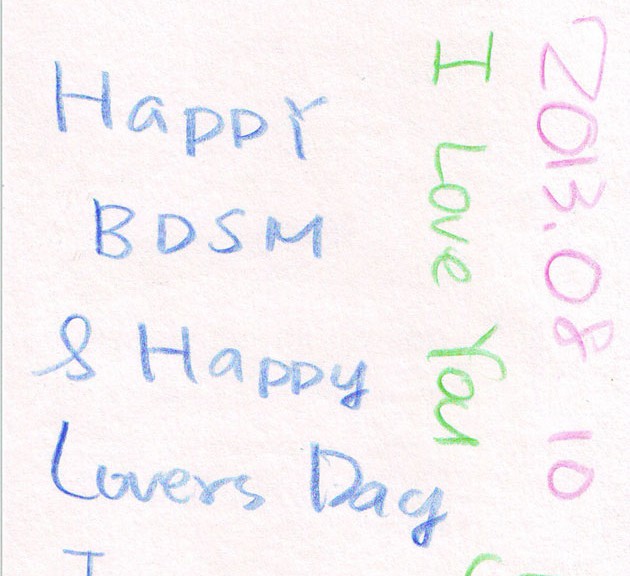 Happy
BDSM
& Happy
Lovers Day
I
I Love You
2013.08 10